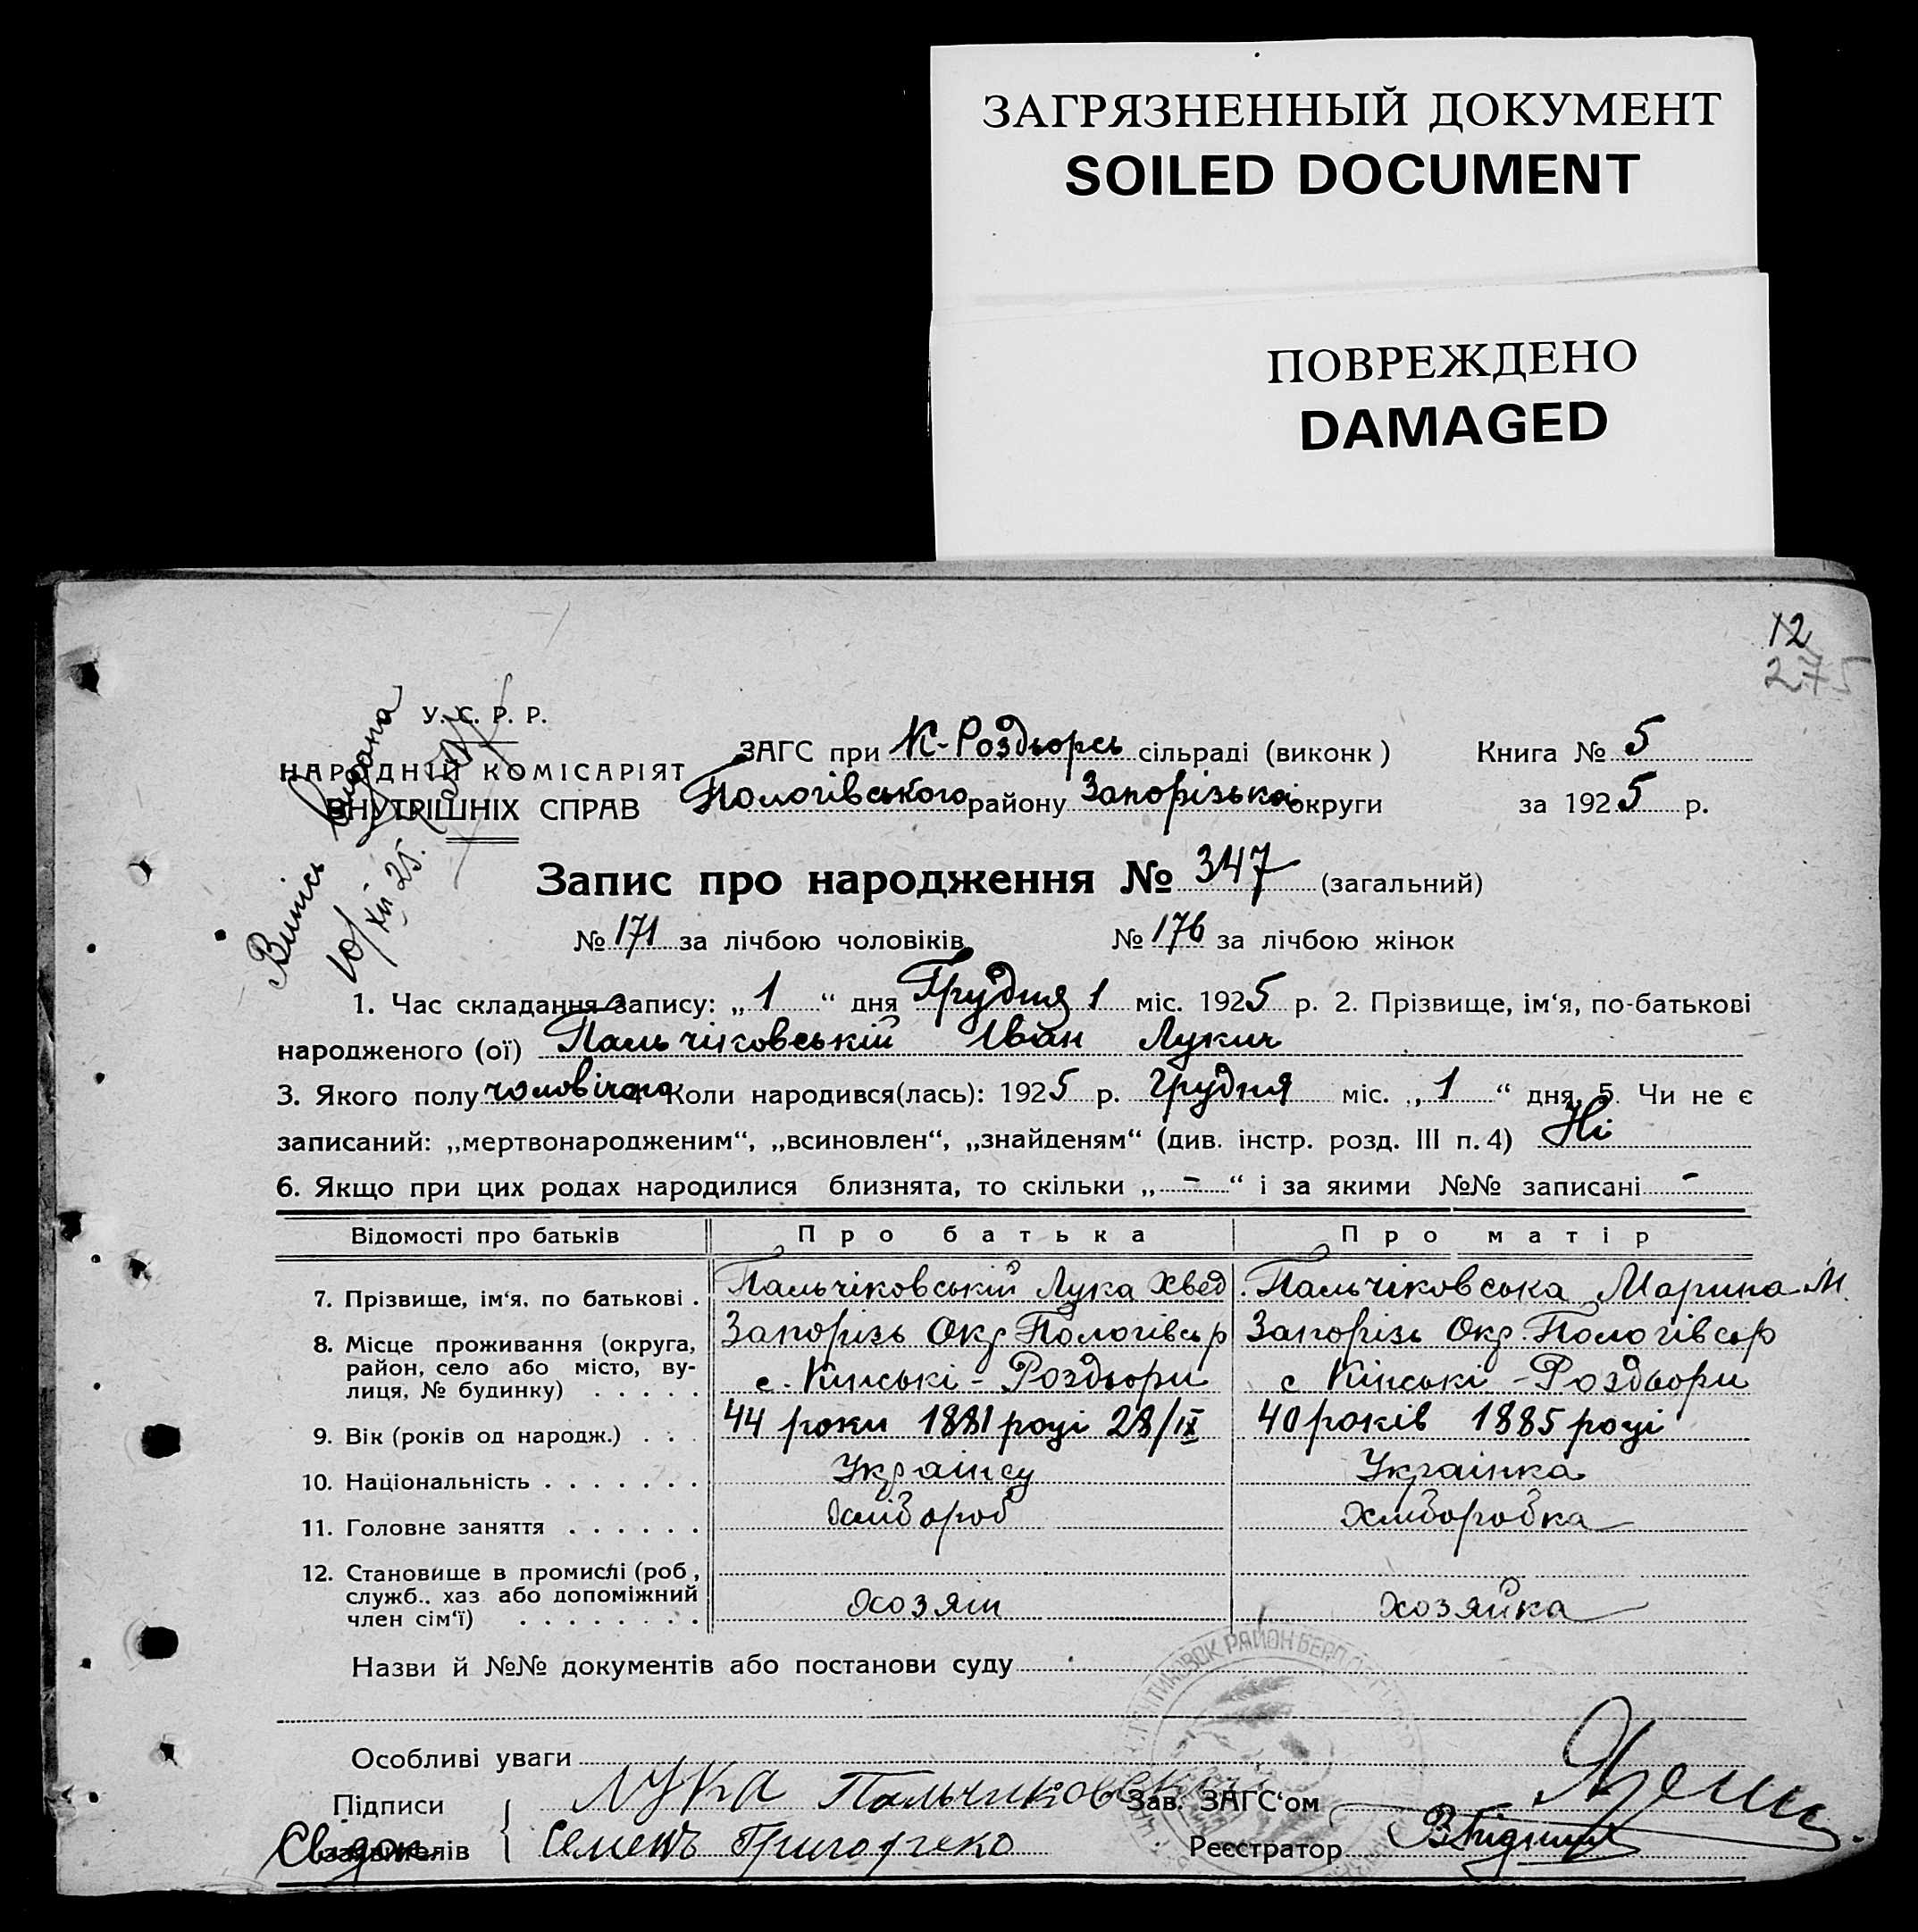 ЗАГРЯЗНЕННЫЙ ДОКУМЕНТ
SOILED DOCUMENT
ПОВРЕЖДЕНО
DAMAGED
12
275
У. С. Р. Р.
НАРОДНІЙ КОМІСАРІЯТ
ВНУТРІШНІХ СПРАВ
Випісь видана
10/XII 25.
ЗАГС при К-Роздьорсь сільраді (виконк) Книга № 5
Пологівського району Запорізька округи за 1925 р.
Запис про народження № 347 (загальний)
№ 171 за лічбою чоловіків № 176 за лічбою жінок
1. Час складання запису: „ 1 “ дня Грудня 1 міс. 1925 р. 2. Прізвище, ім‘я, по-батькові
народженого (ої) Пальчіковській Іван Лукич
3. Якого полу чоловіча 4. Коли народився(лась): 1925 р. Грудня міс. „ 1 “ дня, 5. Чи не є
записаний: „мертвонародженим“, „всиновлен“, „знайденям“ (див. інстр. розд. III п. 4) Ні
6. Якщо при цих родах народилися близнята, то скільки „ - “ і за якими №№ записані -
Відомості про батьків Про батька Про матір
7. Прізвище, ім‘я, по батькові . Пальчіковській Лука Хвед. Пальчіковська Марина М.
8. Місце проживання (округа, район, село або місто, вулиця, № будинку) . . . . . Запорізь Окр Пологівсь р Запорізь Окр. Пологівс р
с. Кінські - Роздьори с Кінські - Роздьори
9. Вік (років од народж.) . . . 44 роки 1881 році 28/IX 40 років 1885 році
10. Національність . . . . . . . Українец Українка
11. Головне заняття . . . . . . Хлібороб Хліборобка
12. Становище в промислі (роб, служб.. хаз або допоміжний член сім‘ї) . . . . . . . . Хозяін Хозяйка
Назви й №№ документів або постанови суду
Особливі уваги
Підписи Лука Пальчиковский Зав. ЗАГС‘ом
Свідок заявителів Семенъ Григоренко Реєстратор